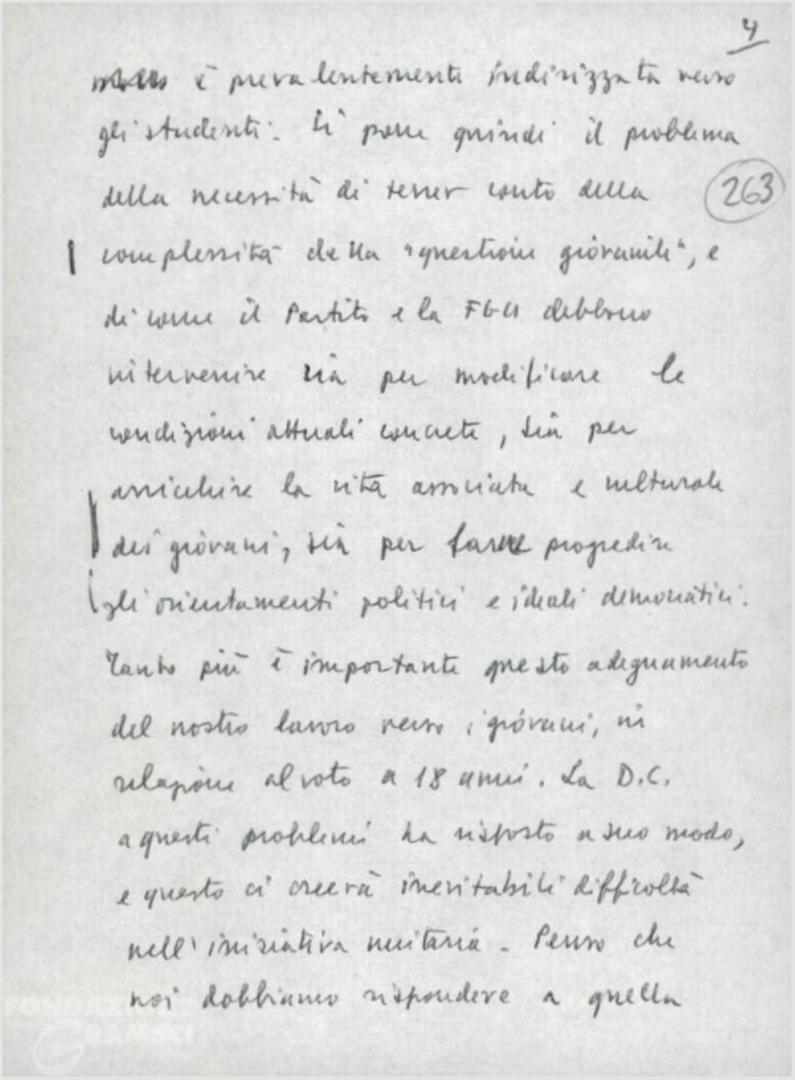 4
è prevalentemente indirizzata verso
gli studenti. Si pone quindi il problema
della necessità di tener conto della
263
complessità della "questione giovanile", e
di come il Partito e la FGCI debbono
intervenire sia per modificare le
condizioni attuali concrete, sia per
arricchire la vita associata e culturale
dei giovani, sia per farne progredire
gli orientamenti politici e ideali democratici.
Tanto più è importante questo adeguamento
del nostro lavoro verso i giovani, in
relazione al voto a 18 anni. La D.C.
a questi problemi ha risposto a suo modo,
e questo ci creerà inevitabili difficoltà
nell'iniziativa unitaria. Penso che
noi dobbiamo rispondere a quella
FONDAZIONE
GRAMSCI